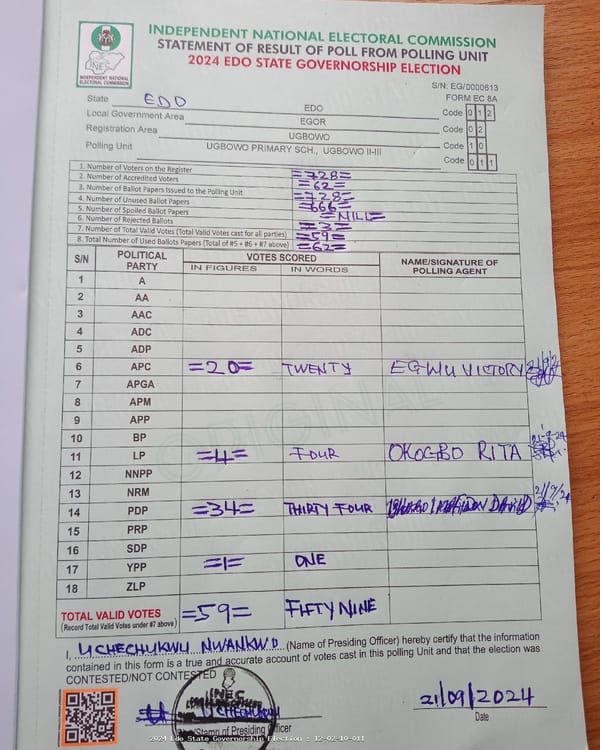 INDEPENDENT NATIONAL ELECTORAL COMMISSION
STATEMENT OF RESULT OF POLL FROM POLLING UNIT
2024 EDO STATE GOVERNORSHIP ELECTION
INEC
INDEPENDENT NATIONAL ELECTORAL COMMISSION
S/N: EG/0000613
FORM EC 8A
State EDO EDO Code 0 1 2
Local Government Area EGOR Code 0 2
Registration Area UGBOWO Code 1 0
Polling Unit UGBOWO PRIMARY SCH., UGBOWO II-III Code 0 1 1
1. Number of Voters on the Register =728=
2. Number of Accredited Voters =62=
3. Number of Ballot Papers Issued to the Polling Unit =728=
4. Number of Unused Ballot Papers =666=
5. Number of Spoiled Ballot Papers =NILL=
6. Number of Rejected Ballots =3=
7. Number of Total Valid Votes (Total Valid Votes cast for all parties) =59=
8. Total Number of Used Ballots Papers (Total of #5 + #6 + #7 above) =62=
S/N POLITICAL PARTY VOTES SCORED NAME/SIGNATURE OF POLLING AGENT
IN FIGURES IN WORDS
1 A
2 AA
3 AAC
4 ADC
5 ADP
6 APC =20= TWENTY EGWU VICTORY
7 APGA
8 APM
9 APP
10 BP
11 LP =4= FOUR OKOGBO RITA
12 NNPP
13 NRM
14 PDP =34= THIRTY FOUR DAVID 21/9/24
15 PRP
16 SDP
17 YPP =1= ONE
18 ZLP
TOTAL VALID VOTES =59= FIFTY NINE
(Record Total Valid Votes under #7 above)
I, UCHECHUKWU NWANKWO (Name of Presiding Officer) hereby certify that the information
contained in this form is a true and accurate account of votes cast in this polling Unit and that the election was
CONTESTED/NOT CONTESTED
INEC
UCHECHUKWU
Stamp of Presiding Officer
21/09/2024
Date
2024 Edo State Governorship Election : 12-02-10-011